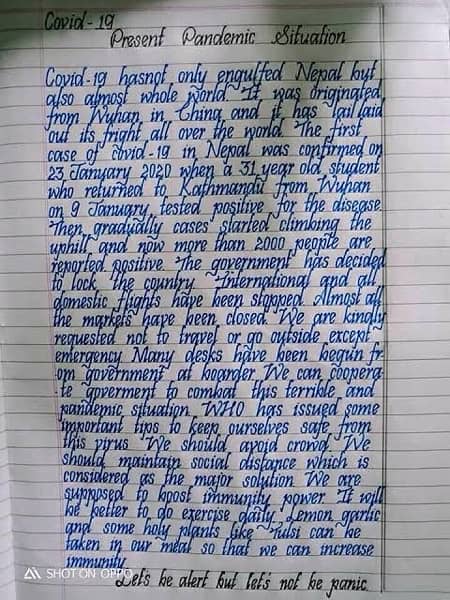 Covid-19
Present Pandemic Situation
Covid-19 hasnot only engulfed Nepal but
also almost whole world. It was originated
from Wuhan in China and it has jail laid
out its fright all over the world. The first
case of covid-19 in Nepal was confirmed on
23 January 2020 when a 31 year old student
who returned to Kathmandu from Wuhan
on 9 January, tested positive for the disease.
Then gradually cases started climbing the
uphill and now more than 2000 people are
reported positive. The government has decided
to lock the country. International and all
domestic flights have been stopped. Almost all
the markets have been closed. We are kindly
requested not to travel or go outside except
emergency. Many desks have been begun fr-
om government at boarder. We can coopera-
-te goverment to combat this terrible and
pandemic situation. WHO has issued some
important tips to keep ourselves safe from
this virus. We should avoid crowd. We
should maintain social distance which is
considered as the major solution. We are
supposed to boost immunity power. It will
be better to do exercise daily. Lemon, garlic
and some holy plants like Tulsi can be
taken in our meal so that we can increase
immunity.
Let's be alert but let's not be panic.
SHOT ON OPPO